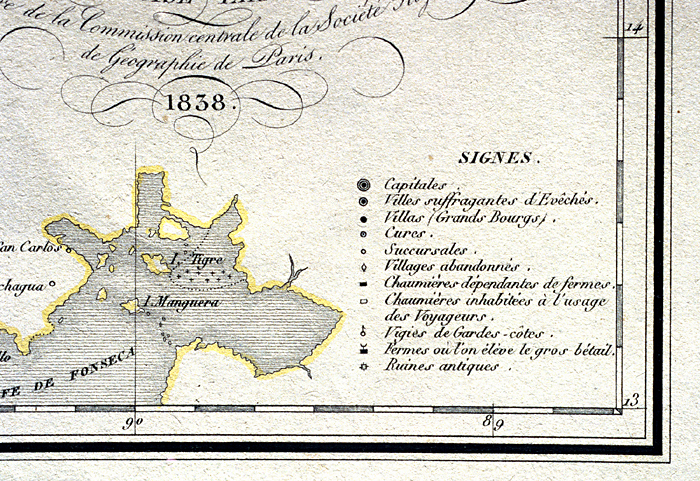 re de la Commission centrale de la Société
de Géographie de Paris.
1838.
14
SIGNES.
Capitales.
Villes suffragantes d'Evêchés.
Villas (Grands Bourgs).
Cures.
Succursales.
Villages abandonnés.
Chaumières dépendantes de fermes.
Chaumières inhabitées à l'usage
des Voyageurs.
Vigies de Gardes-côtes.
Fermes où l'on élève le gros bétail.
Ruines antiques.
an Carlos
chagua
I. Tigre
I. Manguera
FE DE FONSECA
13
90
89